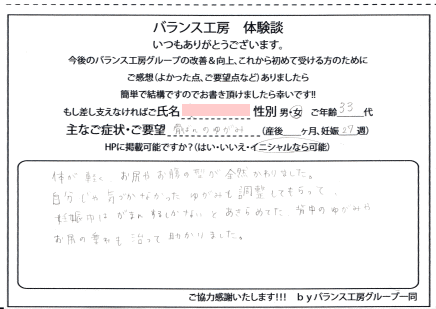 バランス工房 体験談
いつもありがとうございます。
今後のバランス工房グループの改善&向上、これから初めて受ける方のために
ご感想(よかった点、ご要望点など)ありましたら
簡単で結構ですのでお書き頂けましたら幸いです!!
もし差し支えなければご氏名 性別 男・女 ご年齢 33 代
主なご症状・ご要望 背ぼねのゆがみ (産後 ヶ月、妊娠 27 週)
HPに掲載可能ですか?(はい・いいえ・イニシャルなら可能)
体が軽く、お尻やお腹の型が全然かわりました。
自分じゃ気づかなかったゆがみも調整してもらって、
妊娠中はがまんするしかないとあきらめてた、背中のゆがみや
お尻の垂れも治って助かりました。
ご協力感謝いたします!!! byバランス工房グループ一同